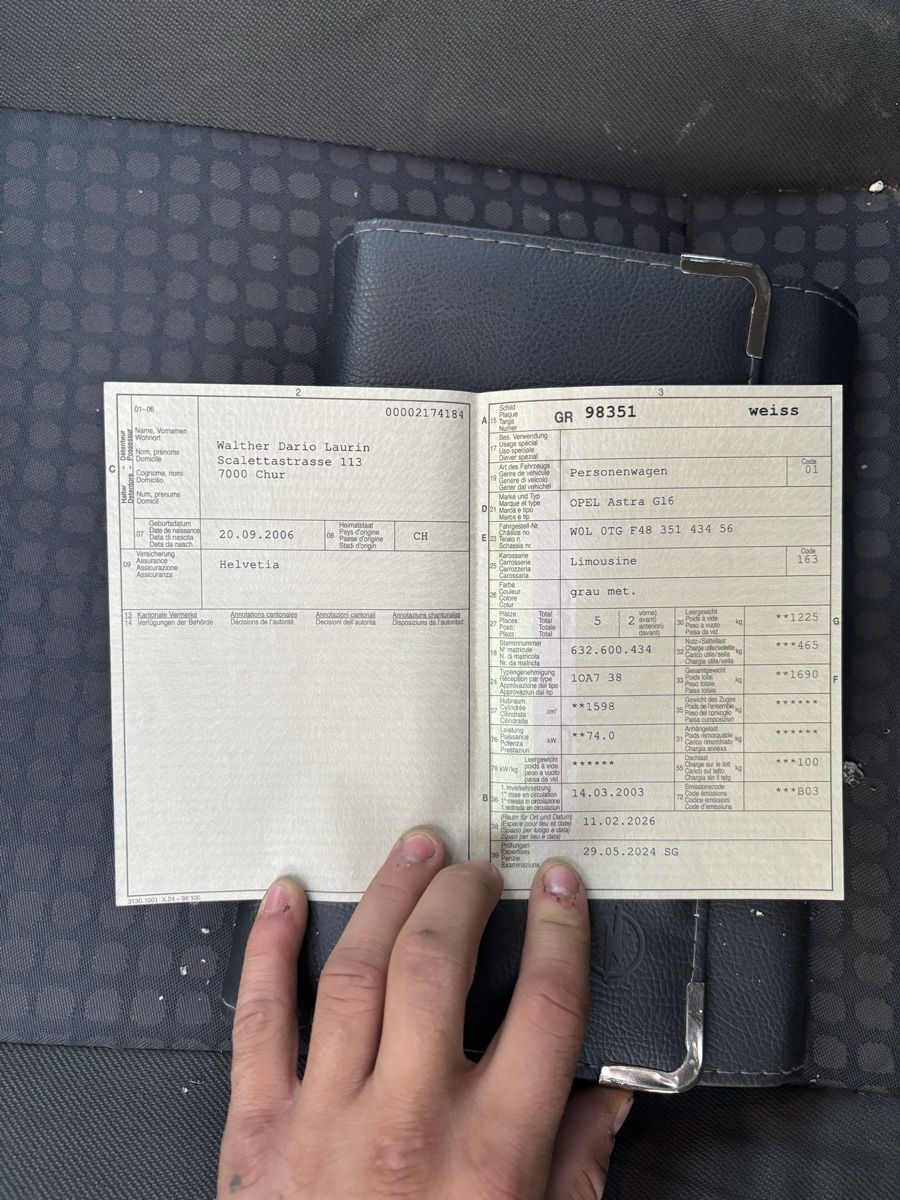 2
01-06
00002174184
C
Halter Détenteur
Detentore - Possessur
Name, Vornamen
Wohnort
Nom, prénoms
Domicile
Cognome, nomi
Domicilio
Num, prenums
Domicil
Walther Dario Laurin
Scalettastrasse 113
7000 Chur
07
Geburtsdatum
Date de naissance
Data di nascita
Data da nasch.
20.09.2006
08
Heimatstaat
Pays d'origine
Paese d'origine
Stadi d'origin
CH
09
Versicherung
Assurance
Assicurazione
Assicuranza
Helvetia
13 Kantonale Vermerke Annotations cantonales Annotazioni cantonali Annotaziuns chantunalas
14 Verfügungen der Behörde Décisions de l'autorité Decisioni dell'autorità Disposiziuns da l'autoritad
3130.1001 X.24 – 98'100
3
A 15
Schild
Plaque
Targa
Numer
GR 98351 weiss
17
Bes. Verwendung
Usage spécial
Uso speciale
Diever spezial
19
Art des Fahrzeugs
Genre de véhicule
Genere di veicolo
Gener dal vehichel
Personenwagen
Code
01
D 21
Marke und Typ
Marque et type
Marca e tipo
Marca e tip
OPEL Astra G16
E 23
Fahrgestell-Nr.
Châssis no
Telaio n.
Schassis nr.
W0L 0TG F48 351 434 56
25
Karosserie
Carrosserie
Carrozzeria
Carossaria
Limousine
Code
163
26
Farbe
Couleur
Colore
Colur
grau met.
27
Plätze: Total
Places: Total
Posti: Totale
Plazs: Total
5 ( 2
vorne)
avant)
anteriori)
davant)
30
Leergewicht
Poids à vide
Peso a vuoto
Paisa da vid
kg
**1225
G
18
Stammnummer
N° matricule
N. di matricola
Nr. da matricla
632.600.434
32
Nutz-/Sattellast
Charge utile/sellette
Carico utile/sella
Chargia utila/sella
kg
***465
24
Typengenehmigung
Réception par type
Approvazione del tipo
Approvaziun dal tip
1OA7 38
33
Gesamtgewicht
Poids total
Peso totale
Paisa totala
kg
**1690
F
37
Hubraum
Cylindrée
Cilindrata
Cilindrada
cm³
**1598
35
Gewicht des Zuges
Poids de l'ensemble
Peso del convoglio
Paisa cumposiziun
kg
******
76
Leistung
Puissance
Potenza
Prestaziun
kW
**74.0
31
Anhängelast
Poids remorquable
Carico rimorchiato
Chargia annexa
kg
******
78 kW/kg
Leergewicht
poids à vide
peso a vuoto
paisa da vid
******
55
Dachlast
Charge sur le toit
Carico sul tetto
Chargia sin il tetg
kg
***100
B 36
1. Inverkehrsetzung
1re mise en circulation
1a messa in circolazione
1. entrada en circulaziun
14.03.2003
72
Emissionscode
Code émissions
Codice emissioni
Code d'emissiuns
***B03
38
(Raum für Ort und Datum)
(Espace pour lieu et date)
(Spazio per luogo e data)
(Spazi per lieu e data)
11.02.2026
39
Prüfungen
Expertises
Perizie
Examinaziuns
29.05.2024 SG